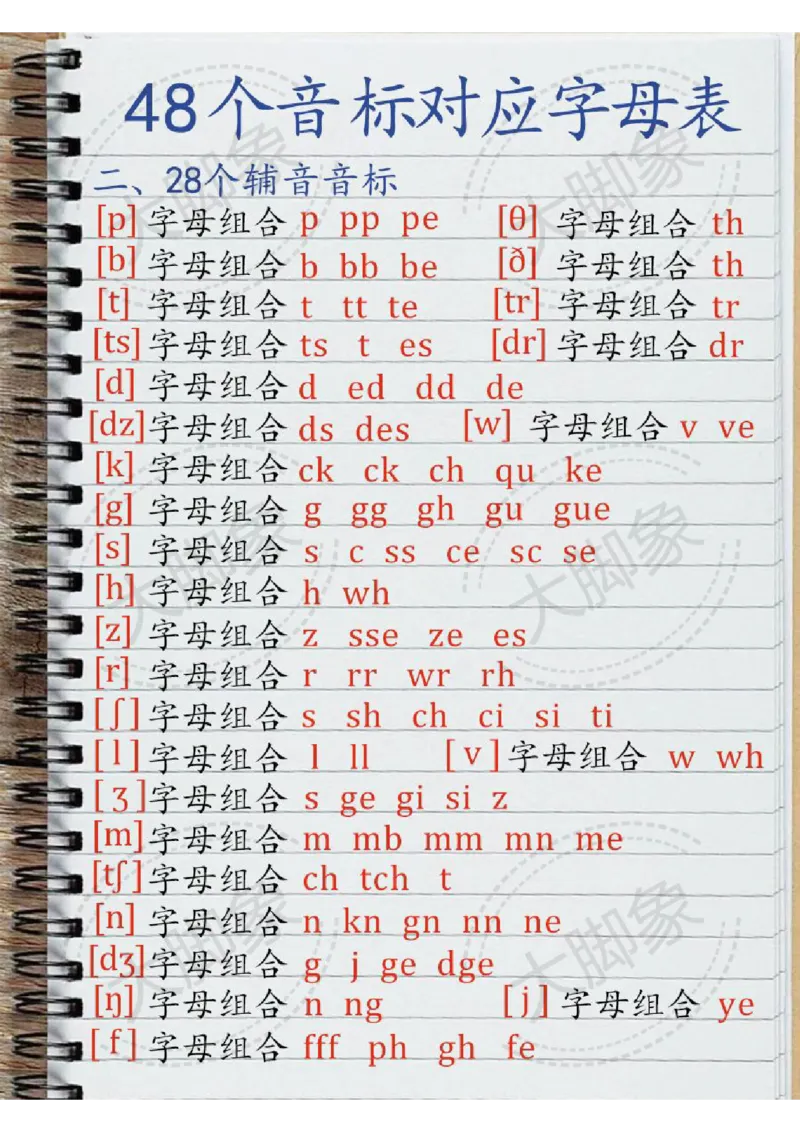 48个音标对应字母表
二、28个辅音音标
[p] 字母组合 p pp pe [θ] 字母组合 th
[b] 字母组合 b bb be [ð] 字母组合 th
[t] 字母组合 t tt te [tr] 字母组合 tr
[ts] 字母组合 ts t es [dr] 字母组合 dr
[d] 字母组合 d ed dd de
[dz] 字母组合 ds des [w] 字母组合 v ve
[k] 字母组合 ck ck ch qu ke
[g] 字母组合 g gg gh gu gue
[s] 字母组合 s c ss ce sc se
[h] 字母组合 h wh
[z] 字母组合 z sse ze es
[r] 字母组合 r rr wr rh
[ʃ] 字母组合 s sh ch ci si ti
[l] 字母组合 l ll [v] 字母组合 w wh
[ʒ] 字母组合 s ge gi si z
[m] 字母组合 m mb mm mn me
[tʃ] 字母组合 ch tch t
[n] 字母组合 n kn gn nn ne
[dʒ] 字母组合 g j ge dge
[ŋ] 字母组合 n ng [j] 字母组合 ye
[f] 字母组合 fff ph gh fe
大脚象
大脚象
大脚象
大脚象
大脚象
大脚象